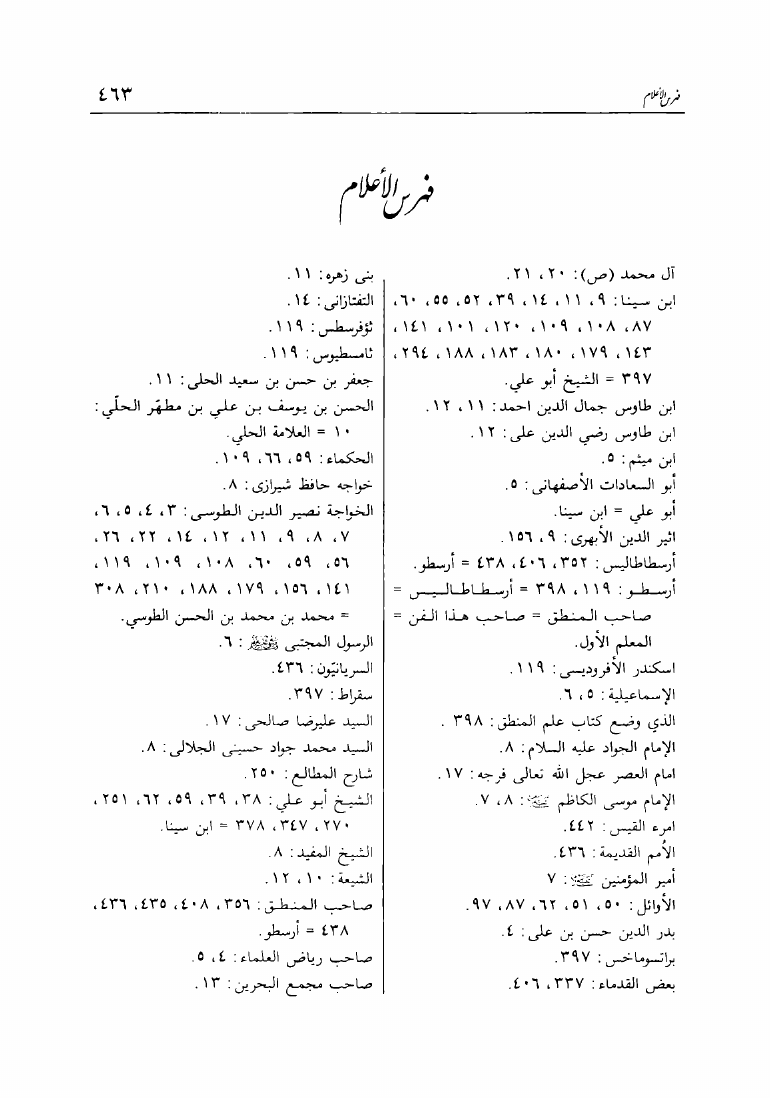 فهرس الأعلام
٤٦٣
فهرس الأعلام
آل محمد (ص): ٢٠، ٢١.
ابن سينا: ٩، ١١، ١٤، ٣٩، ٥٢، ٥٥، ٦٠،
٨٧، ١٠٨، ١٠٩، ١٢٠، ١٠١، ١٤١،
١٤٣، ١٧٩، ١٨٠، ١٨٣، ١٨٨، ٢٩٤،
٣٩٧ = الشيخ أبو علي.
ابن طاوس جمال الدين احمد: ١١، ١٢.
ابن طاوس رضي الدين على: ١٢.
ابن ميثم: ٥.
أبو السعادات الأصفهانى: ٥.
أبو علي = ابن سينا.
اثير الدين الأبهرى: ٩، ١٥٦.
أرسطاطاليس: ٣٥٢، ٤٠٦، ٤٣٨ = أرسطو.
أرسطو: ١١٩، ٣٩٨ = أرسطاطاليس =
صاحب المنطق = صاحب هذا الفن =
المعلم الأول.
اسكندر الأفروديسى: ١١٩.
الإسماعيلية: ٥، ٦.
الذي وضع كتاب علم المنطق: ٣٩٨ .
الإمام الجواد عليه السلام: ٨.
امام العصر عجل الله تعالى فرجه: ١٧.
الإمام موسى الكاظم: ٨، ٧.
امرء القيس: ٤٤٢.
الأمم القديمة: ٤٣٦.
أمير المؤمنين: ٧
الأوائل: ٥٠، ٥١، ٦٢، ٨٧، ٩٧.
بدر الدين حسن بن على: ٤.
براتسوماخس: ٣٩٧.
بعض القدماء: ٣٣٧، ٤٠٦.
بنى زهره: ١١.
التفتازانى: ١٤.
ثؤفرسطس: ١١٩.
ثامسطيوس: ١١٩.
جعفر بن حسن بن سعيد الحلى: ١١.
الحسن بن يوسف بن علي بن مطهّر الحلّي:
١٠ = العلامة الحلي.
الحكماء: ٥٩، ٦٦، ١٠٩.
خواجه حافظ شيرازى: ٨.
الخواجة نصير الدين الطوسى: ٣، ٤، ٥، ٦،
٧، ٨، ٩، ١١، ١٢، ١٤، ٢٢، ٢٦،
٥٦، ٥٩، ٦٠، ١٠٨، ١٠٩، ١١٩،
١٤١، ١٥٦، ١٧٩، ١٨٨، ٢١٠، ٣٠٨
= محمد بن محمد بن الحسن الطوسي.
الرسول المجتبى: ٦.
السريانيّون: ٤٣٦.
سقراط: ٣٩٧.
السيد عليرضا صالحى: ١٧.
السيد محمد جواد حسينى الجلالى: ٨.
شارح المطالع: ٢٥٠.
الشيخ أبو علي: ٣٨، ٣٩، ٥٩، ٦٢، ٢٥١،
٢٧٠، ٣٤٧، ٣٧٨ = ابن سينا.
الشيخ المفيد: ٨.
الشيعة: ١٠، ١٢.
صاحب المنطق: ٣٥٦، ٤٠٨، ٤٣٥، ٤٣٦،
٤٣٨ = أرسطو.
صاحب رياض العلماء: ٤، ٥.
صاحب مجمع البحرين: ١٣.